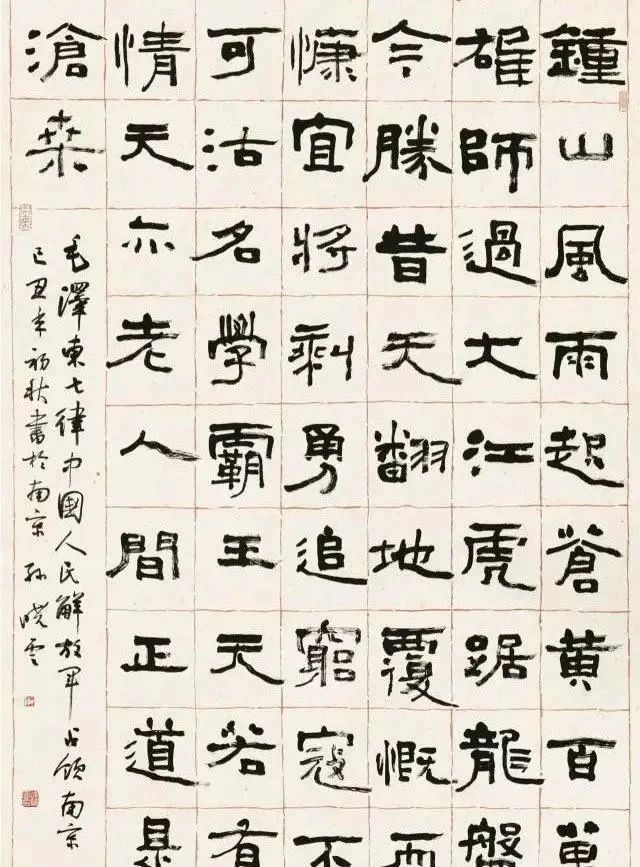 鍾山風雨起蒼黃百萬
雄師過大江虎踞龍盤
今勝昔天翻地覆慨而
慷宜將剩勇追窮寇不
可沽名學霸王天若有
情天亦老人間正道是
滄桑
毛澤東七律中國人民解放軍占領南京
己丑年初秋書於南京 孫曉雲